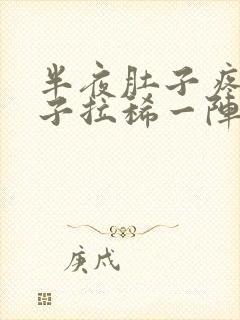 半夜肚子疼
子拉稀一陣
庚戌